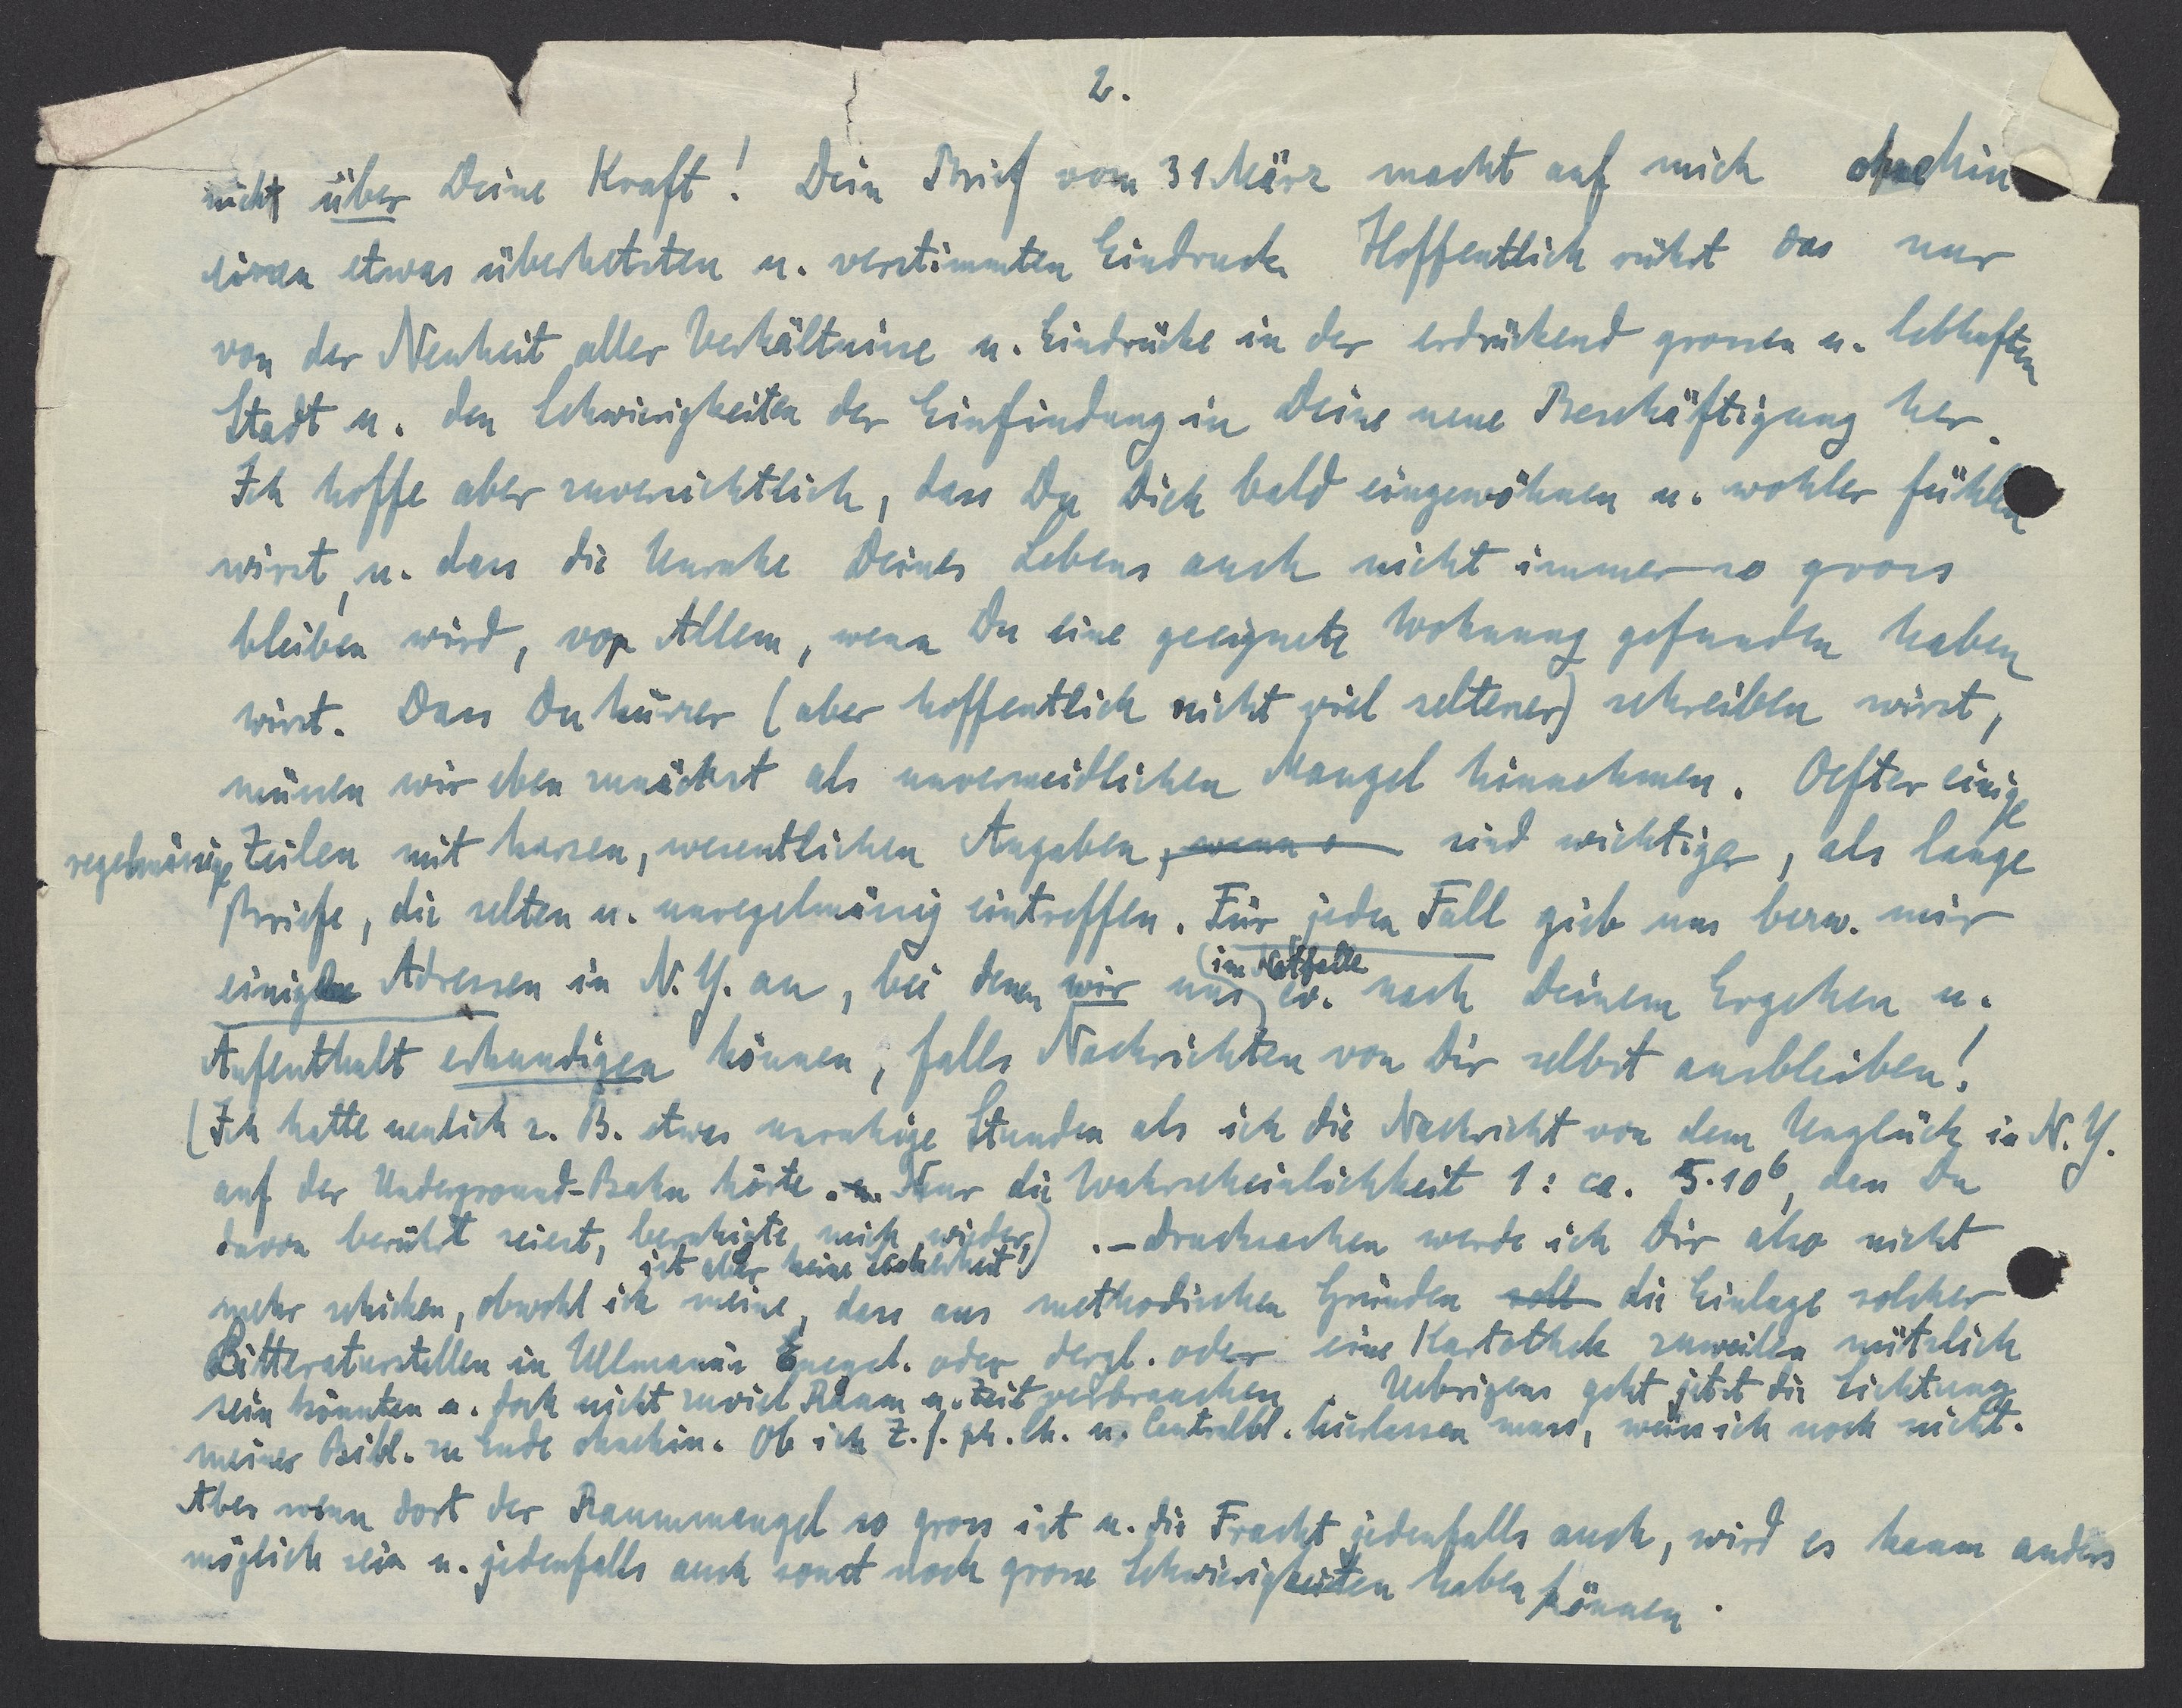 2.
nicht über Deine Kraft! Dein Brief vom 31 März macht auf mich ohnehin
einen etwas überhetzten u. verstimmten Eindruck Hoffentlich rührt das nur
von der Neuheit aller Verhältnisse u. Eindrücke in der erdrückend grossen u. lebhaften
Stadt u. den Schwierigkeiten der Einfindung in Deine neue Beschäftigung her.
Ich hoffe aber zuversichtlich, dass Du Dich bald eingewöhnen u. wohler fühlen
wirst, u. dass die Unruhe Deines Lebens auch nicht immer so gross
bleiben wird, vor Allem, wenn Du eine geeignete Wohnung gefunden haben
wirst. Dass Du kürzer (aber hoffentlich nicht viel seltener) schreiben wirst,
müssen wir eben zunächst als unvermeidlichen Mangel hinnehmen. Oefter einige
regelmässige Zeilen mit kurzen, wesentlichen Angaben, wenn s sind wichtiger, als lange
Briefe, die selten u. unregelmässig eintreffen. Für jeden Fall gieb uns bezw. mir
einige Adressen in N.Y. an, bei denen wir uns (im Notfalle) ev. nach Deinem Ergehen u.
Aufenthalt erkundigen können, falls Nachrichten von Dir selbst ausbleiben!
(Ich hatte neulich z. B. etwas unruhige Stunden als ich die Nachricht von dem Unglück in N.Y.
auf der Underground-Bahn hörte. u. Nur die Wahrscheinlichkeit 1: ca. 5·10⁶, dass Du
davon berührt seiest, beruhigte mich wieder,
ist aber keine Sicherheit!) .- Drucksachen werde ich Dir also nicht
mehr schicken, obwohl ich meine, dass aus methodischen Gründen soll die Einlage solcher
Litteraturstellen in Ullmann's Enzycl. oder dergl. oder eine Kartothek zuweilen nützlich
sein könnten u. doch nicht zuviel Raum u. Zeit verbrauchen. Uebrigens geht jetzt die Sichtung
meiner Bibl. zu Ende ohnehin. Ob ich Z. f. ph. Ch. u. Centralbl. hierlassen muss, weiss ich noch nicht.
Aber wenn dort der Raummangel so gross ist u. die Fracht jedenfalls auch, wird es kaum anders
möglich sein u. jedenfalls auch sonst noch grosse Schwierigkeiten haben können.